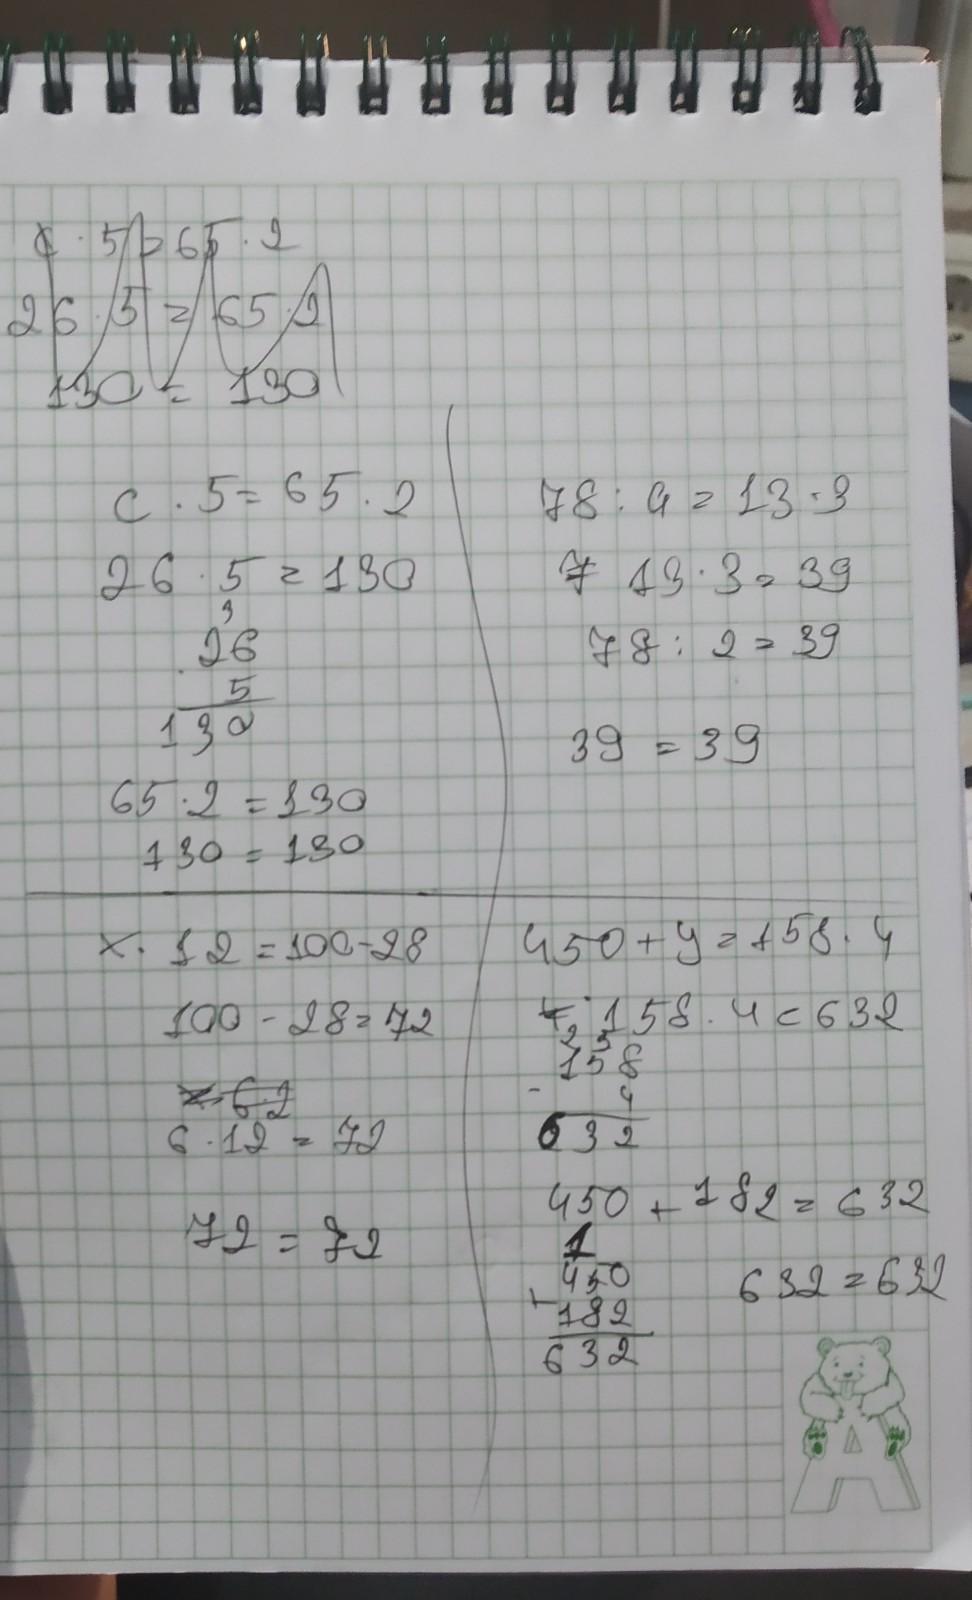 c · 5 = 65 · 2
26 · 5 = 65 · 2
130 = 130
c · 5 = 65 · 2
26 · 5 = 130
3
26
· 5
130
65 · 2 = 130
130 = 130
78 : a = 13 · 3
13 · 3 = 39
78 : 2 = 39
39 = 39
x · 12 = 100 - 28
100 - 28 = 72
x · 6 · 2
6 · 12 = 72
72 = 72
450 + y = 158 · 4
158 · 4 = 632
2 3
158
· 4
632
450 + 182 = 632
1
450
+ 182
632
632 = 632
A